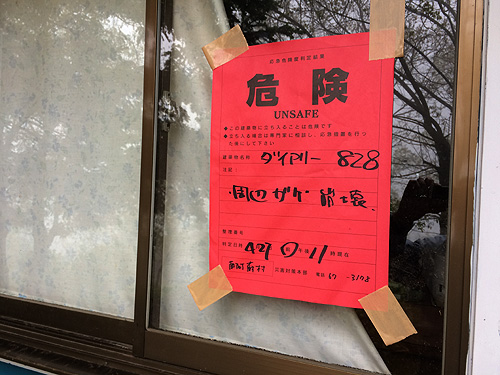 応急危険度判定結果
危険
UNSAFE
●この建築物に立ち入ることは危険です
●立ち入る場合は専門家に相談し、応急措置を行っ
た後にして下さい
建築物名称 ダイアリー 828
注記:
周辺ガケ崩壊
整理番号
判定日時 月 日 午前 午後 11 時現在
南阿蘇村 災害対策本部 電話 67 -3108